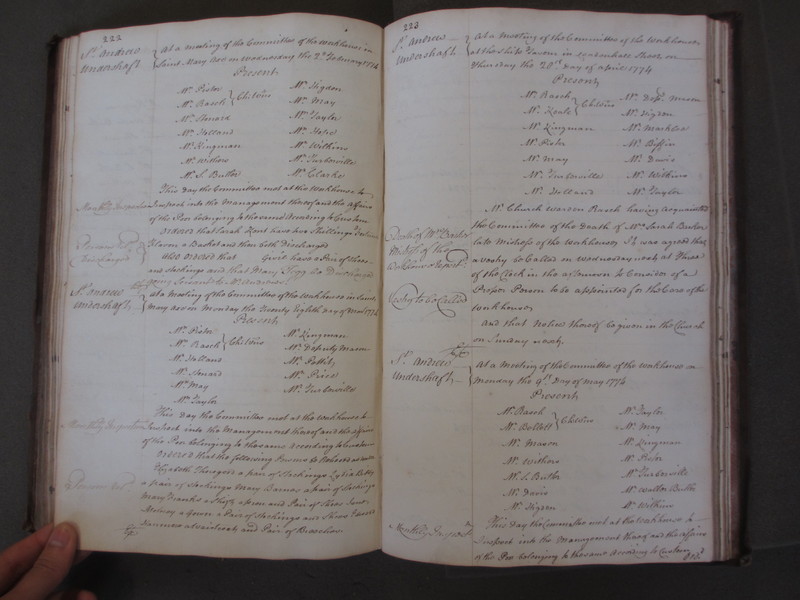 222
St. Andrew Undershaft
At a meeting of the Committee of the workhouse in
Saint Mary Axe on Wednesday the 2d. February 1774
Present
Mr. Prior Mr. Higden
Mr. Raseh Ch:wns Mr. May
Mr. Mr. Taylor
Mr. Holland Mr. Hose
Mr. Kingman Mr. Wilkins
Mr. Withins Mr. Turberville
Mr. S. Butler Mr. Clarke
This day the Committee met at this workhouse to
Monthly Inspection Inspect into the Management thereof and the affairs
of the Poor belonging to the same According to Custom
Ordered that Sarah Kent have two Shillings
a Basket and then be discharged
Also ordered that Girit have a Pair of Shoes
and Stockings and that Mary be Discharged
St. Andrew Undershaft
At a meeting of the Committee of the workhouse in Saint
Mary Axe on Monday the Twenty Eighth day of Mar. 1774
Present
Mr. Prior Mr. Kingman
Mr. Raseh Ch:wns Mr. Deputy Mason
Mr. Holland Mr.
Mr. Mr. Price
Mr. May Mr. Turberville
Mr. Taylor
This day the Committee met at the workhouse to
Monthly Inspection Inspect into the Management thereof and the affairs
of the Poor belonging to the same According to Custom
Ordered that the following Persons be Relieved as under
Elizabeth a pair of Stockings
a pair of Stockings Mary Barnes a pair of Stockings
Mary a Shift, Apron and Pair of Shoes
a Gown a Pair of Stockings and Shoes
and Pair of Breeches
223
St. Andrew Undershaft
At a meeting of the Committee of the workhouse
at the Ship Tavern in Leadenhall Street on
Thursday the 28th. day of April 1774
Present
Mr. Raseh Ch:wns Mr. Depy. Mason
Mr. Mr. Higden
Mr. Kingman Mr.
Mr. Prior Mr. Biffin
Mr. May Mr. Davis
Mr. Turberville Mr. Wilkins
Mr. Holland Mr. Taylor
Mr. Church warden Raseh having acquainted
Death of Mrs. Midss. of the workhouse report'd
the Committee of the Death of Mrs. Sarah
late Mistress of the workhouse It was agreed that
a vestry be Called on Wednesday next at Three
of the Clock in the afternoon to Consider of a
Vestry to be Called Proper Person to be appointed for the Care of the
workhouse
And that Notice thereof be given in the Church
on Sunday next.
St. Andrew Undershaft
At a Meeting of the Committee of the workhouse on
Monday the 9th. Day of May 1774
Present
Mr. Raseh Ch:wns Mr. Taylor
Mr. Mr. May
Mr. Mason Mr. Kingman
Mr. Withins Mr. Prior
Mr. S. Butler Mr. Turberville
Mr. Davis Mr. Walter Butler
Mr. Higden Mr. Wilkins
This day the Committee met at the workhouse to
Monthly Inspectn. Inspect into the Management thereof and the affairs
of the Poor belonging to the same According to Custom